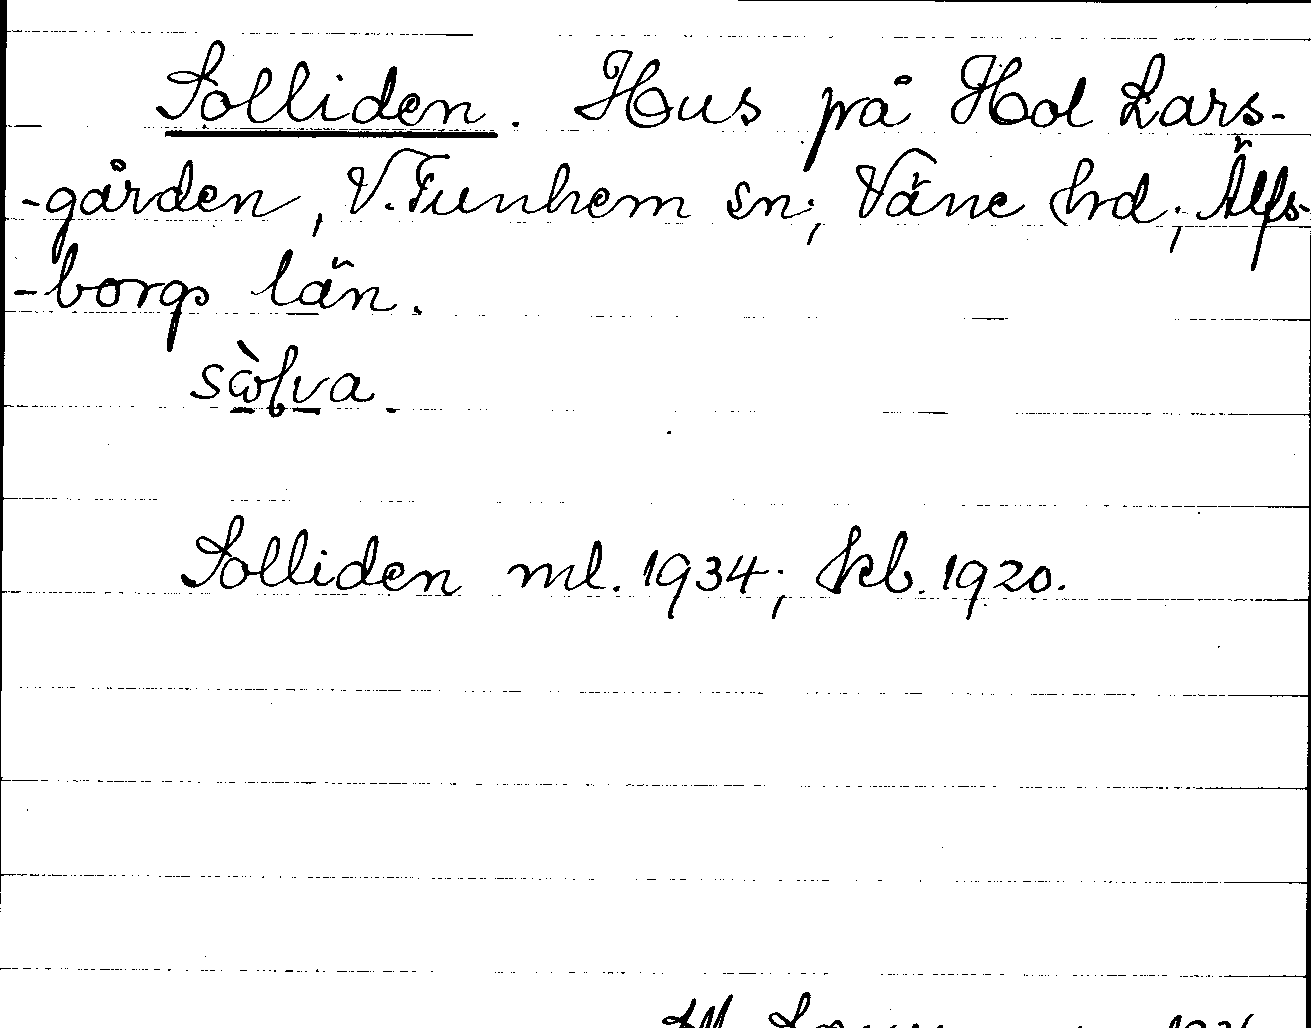 Solliden. Hus på Hol Lars-
-gården, V. Tunhem sn; Väne hrd; Älfs-
-borgs län.
Solliden ml. 1934; kb. 1920.